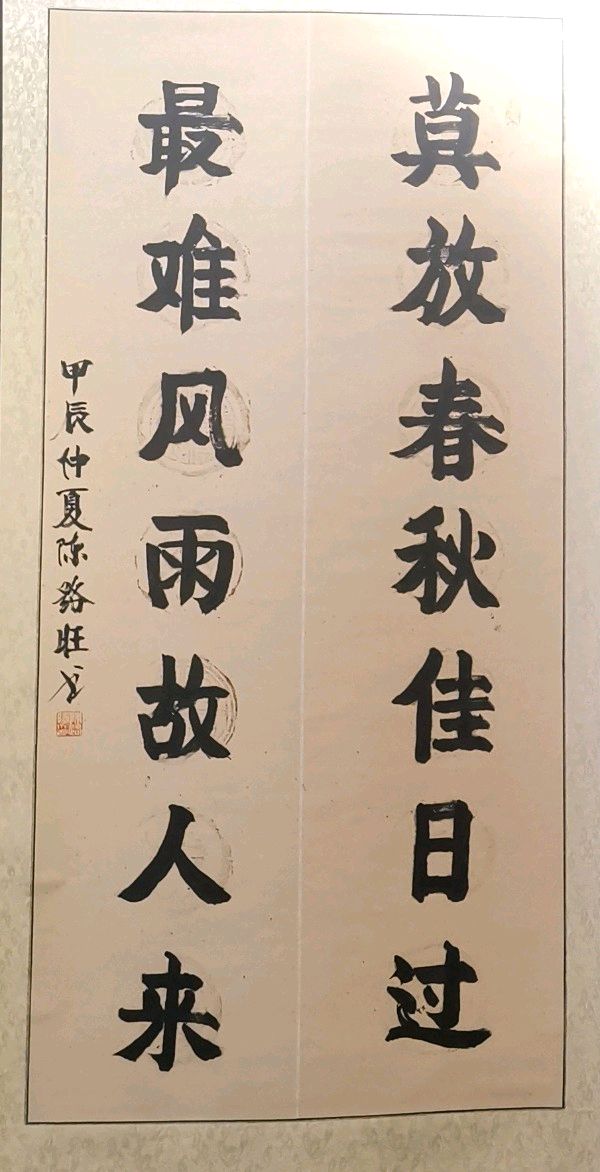 莫放春秋佳日过
最难风雨故人来
甲辰仲夏陈 旺书